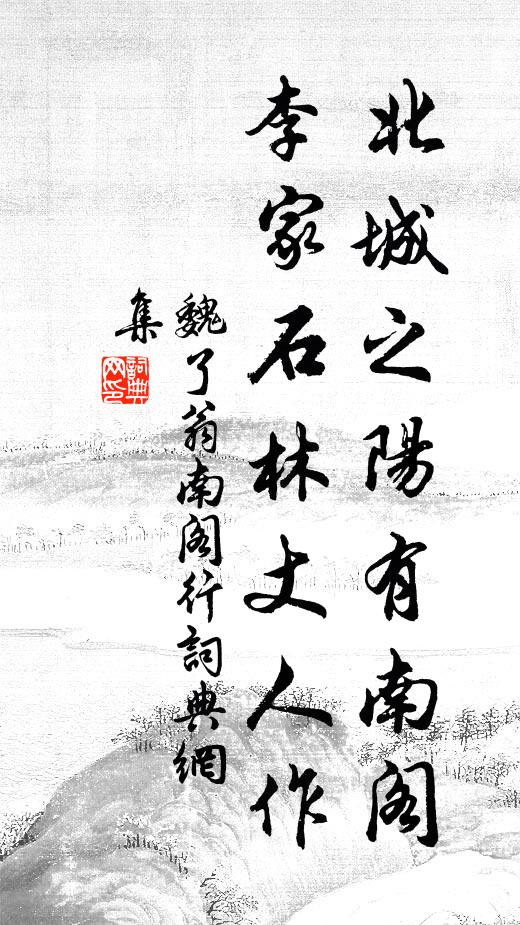 北城之陽有南閣
李家石林丈人作
魏了翁南閣行詞典網
集
詞典
网印